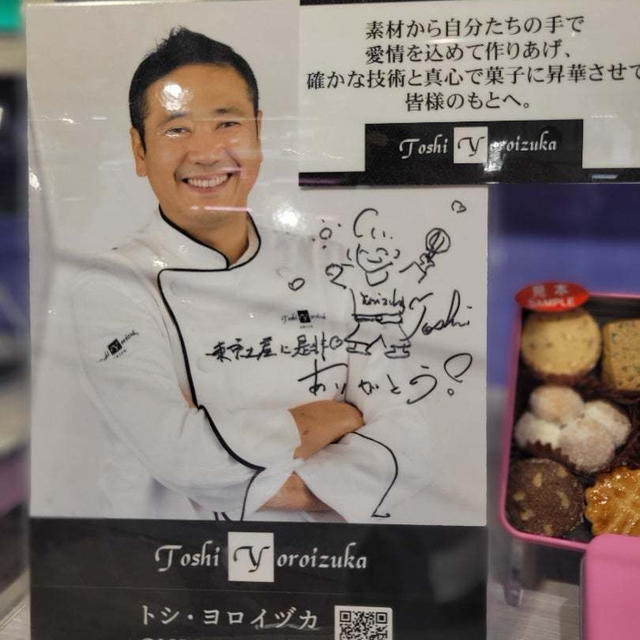 素材から自分たちの手で
愛情を込めて作りあげ、
確かな技術と真心で菓子に昇華させて
皆様のもとへ。
Toshi Yoroizuka
見本
SAMPLE
Toshi
ありがとう!
Toshi Yoroizuka
トシ・ヨロイヅカ